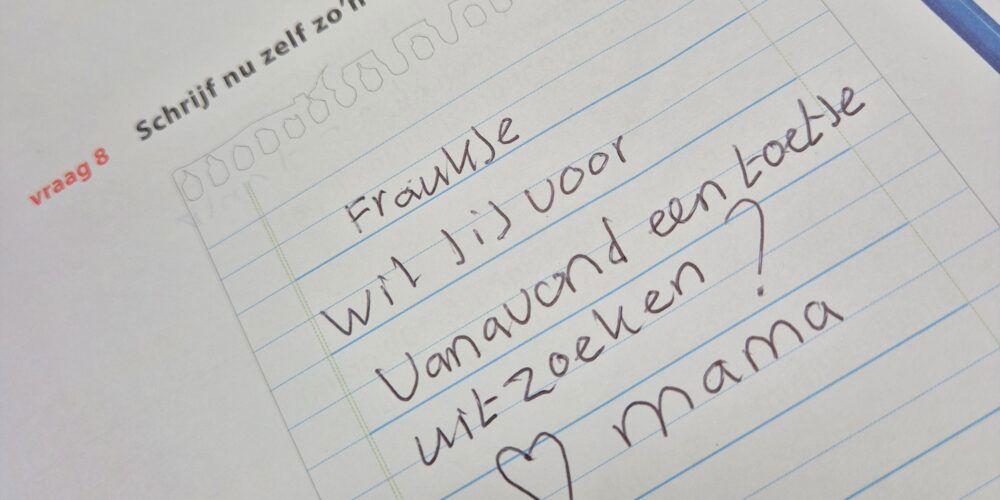 vraag 8 Schrijf nu zelf zo'n
Fraukje
wil jij voor
vanavond een toetje
uitzoeken?
♡ mama